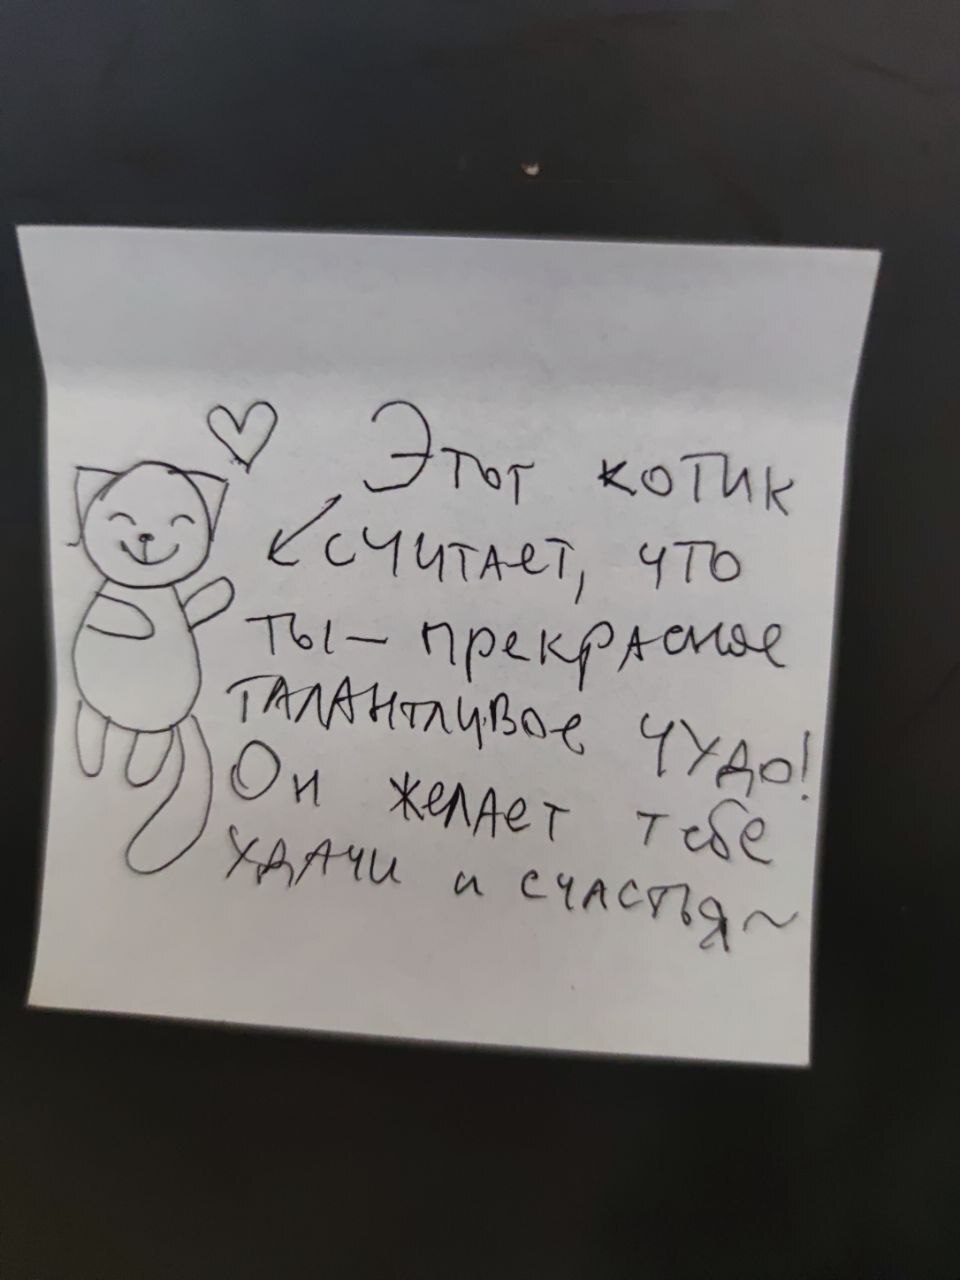 Этот котик
считает, что
ты — прекрасное
талантливое чудо!
Он желает тебе
удачи и счастья~